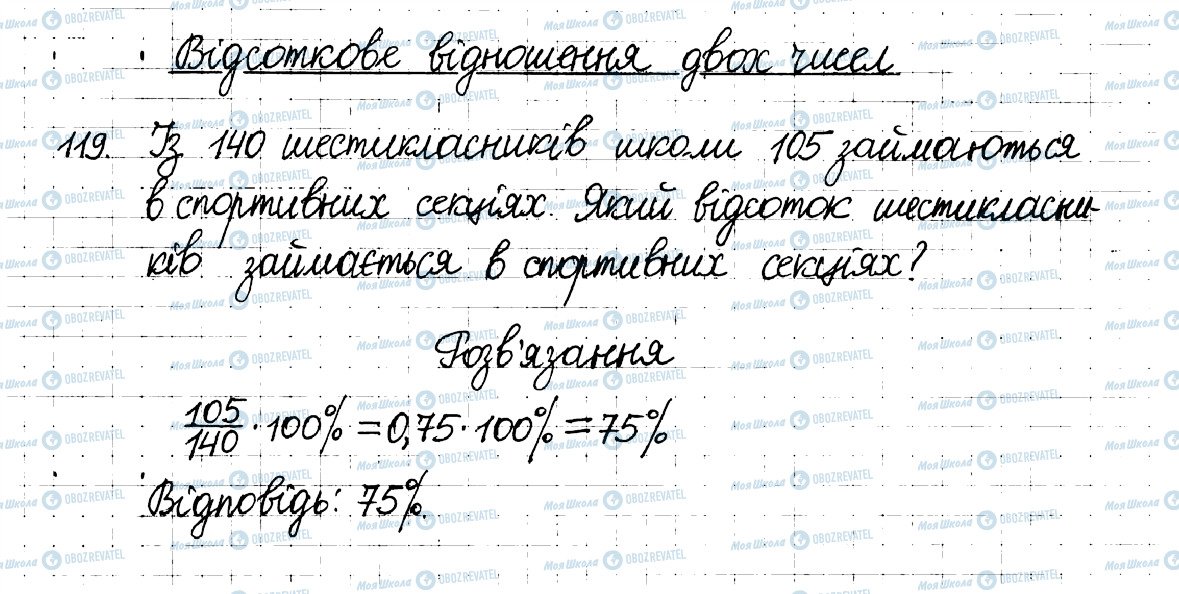 Відсоткове відношення двох чисел
119. Із 140 шестикласників школи 105 займаються
в спортивних секціях. Який відсоток шестикласни-
ків займається в спортивних секціях?
Розв'язання
105/140 · 100% = 0,75 · 100% = 75%
Відповідь: 75%.
Моя Школа OBOZREVATEL